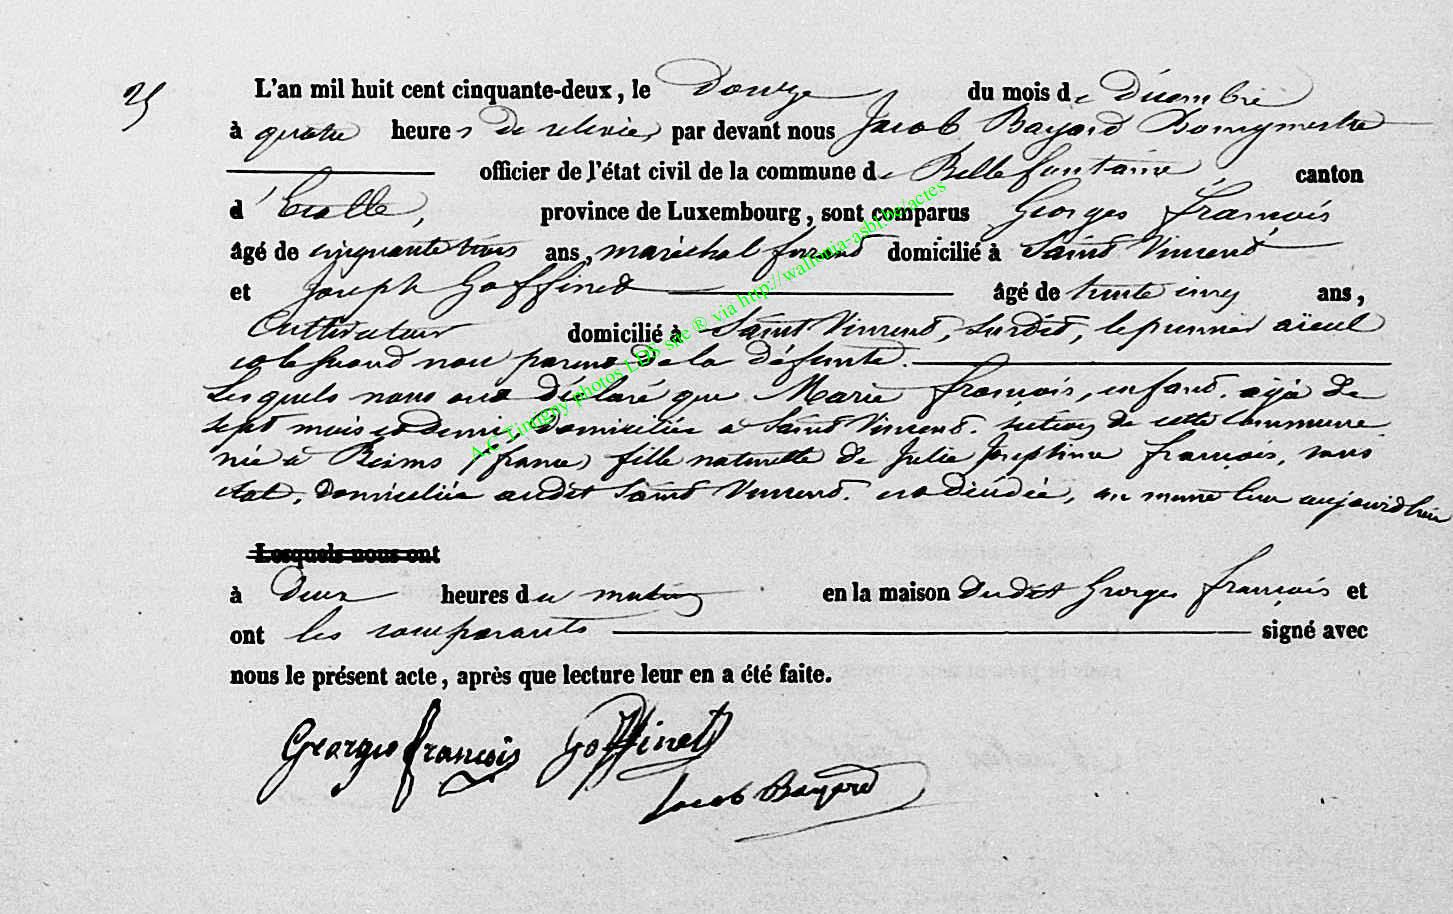 25
L'an mil huit cent cinquante-deux, le Douze du mois de Décembre
à quatre heures de relevée, par devant nous Jacob Bayard Bourgmestre
officier de l'état civil de la commune de Bellefontaine, canton
d'Etalle, province de Luxembourg, sont comparus Georges François
âgé de cinquante trois ans, maréchal ferrand domicilié à Saint Vincent
et Joseph Goffinet âgé de trente cinq ans,
Cultivateur domicilié à Saint Vincent, susdit, le premier aïeul
et le second non parent de la défunte.
Lesquels nous ont déclaré que Marie François, enfant, agé de
sept mois et demi, domiciliée a Saint Vincent. section de cette commune
née à Reims (france) fille naturelle de Julie Josephine François, sans
état, domiciliée audit Saint Vincent. est décédée, au même lieu aujourd'hui
Lesquels nous ont
à deux heures du matin en la maison dudit Georges François et
ont les comparants signé avec
nous le présent acte, après que lecture leur en a été faite.
Georges françois Goffinet
Jacob Bayard
A.C Tintigny photos LDS site ® via http://wallonia-asbl.be/actes